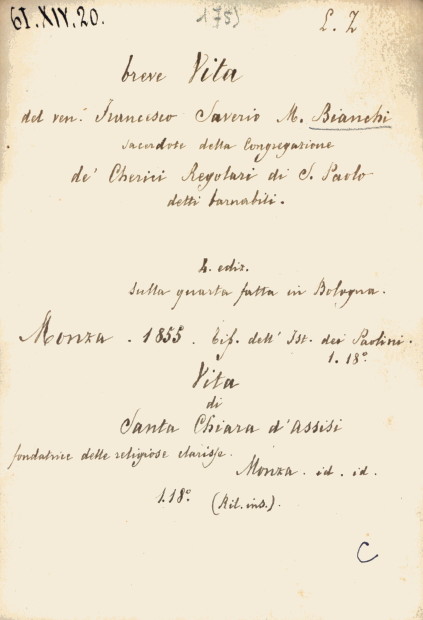 61.XIV.20.
L. Z
breve Vita
del ven. Francesco Saverio M. Bianchi
sacerdote della Congregazione
de' Cherici Regolari di S. Paolo
detti barnabiti.
ediz.
sulla quarta fatta in Bologna.
Monza . 1855 . Tip. dell' Ist. dei Paolini.
1. 18º
Vita
di
Santa Chiara d'Assisi
fondatrice delle religiose clarisse.
Monza . id . id .
1.18º (Ril. ins.).
C